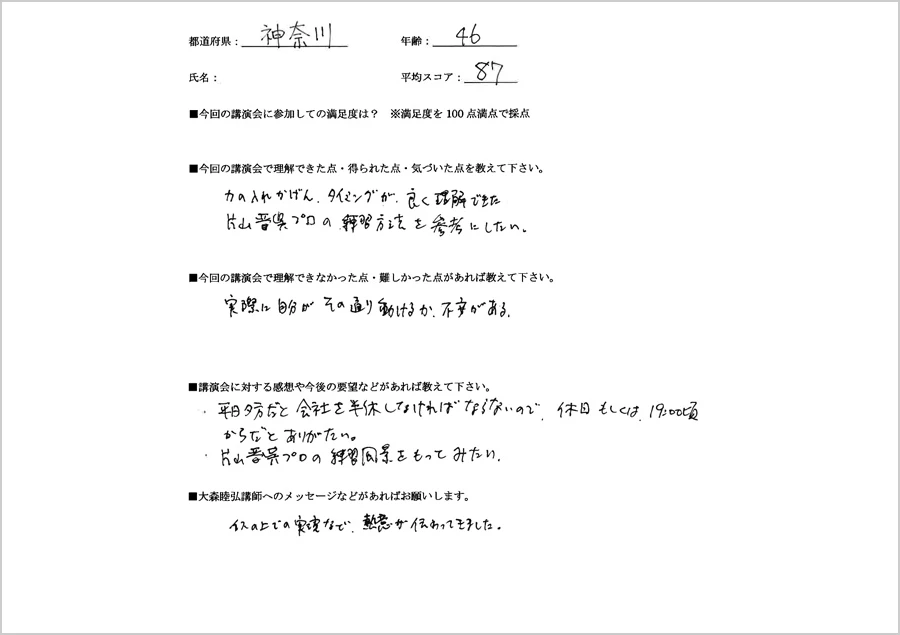 都道府県：神奈川 年齢：46
氏名： 平均スコア：87
■今回の講演会に参加しての満足度は？ ※満足度を100点満点で採点
■今回の講演会で理解できた点・得られた点・気づいた点を教えて下さい。
力の入れかげん、タイミングが、良く理解できた
片山晋呉プロの練習方法を参考にしたい。
■今回の講演会で理解できなかった点・難しかった点があれば教えて下さい。
実際に自分がその通り動けるか、不安がある。
■講演会に対する感想や今後の要望などがあれば教えて下さい。
・平日夕方だと会社を半休しなければならないので、休日もしくは、19:00頃
からだとありがたい。
・片山晋呉プロの練習風景をもってみたい。
■大森睦弘講師へのメッセージなどがあればお願いします。
イスの上での実演など、熱意が伝わってきました。